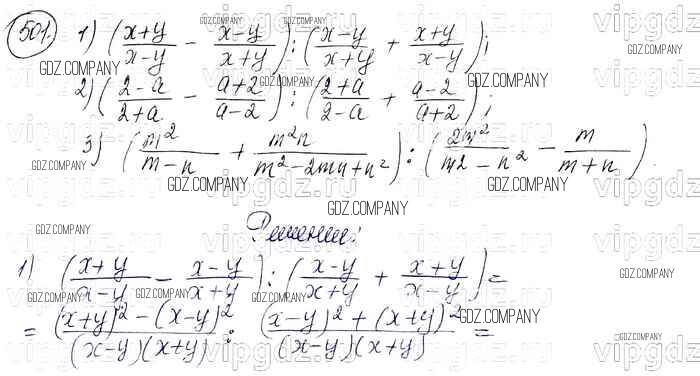 501. 1) (x+y/x-y - x-y/x+y) : (x-y/x+y + x+y/x-y);
2) (2-a/2+a - a+2/a-2) : (2+a/2-a + a-2/a+2);
3) (m²/m-n + m²n/m²-2mn+n²) : (2m²/m2-n² - m/m+n).
Решение:
1) (x+y/x-y - x-y/x+y) : (x-y/x+y + x+y/x-y) =
= (x+y)²-(x-y)²/(x-y)(x+y) : (x-y)²+(x+y)²/(x-y)(x+y) =
GDZ.COMPANY
vipgdz.ru